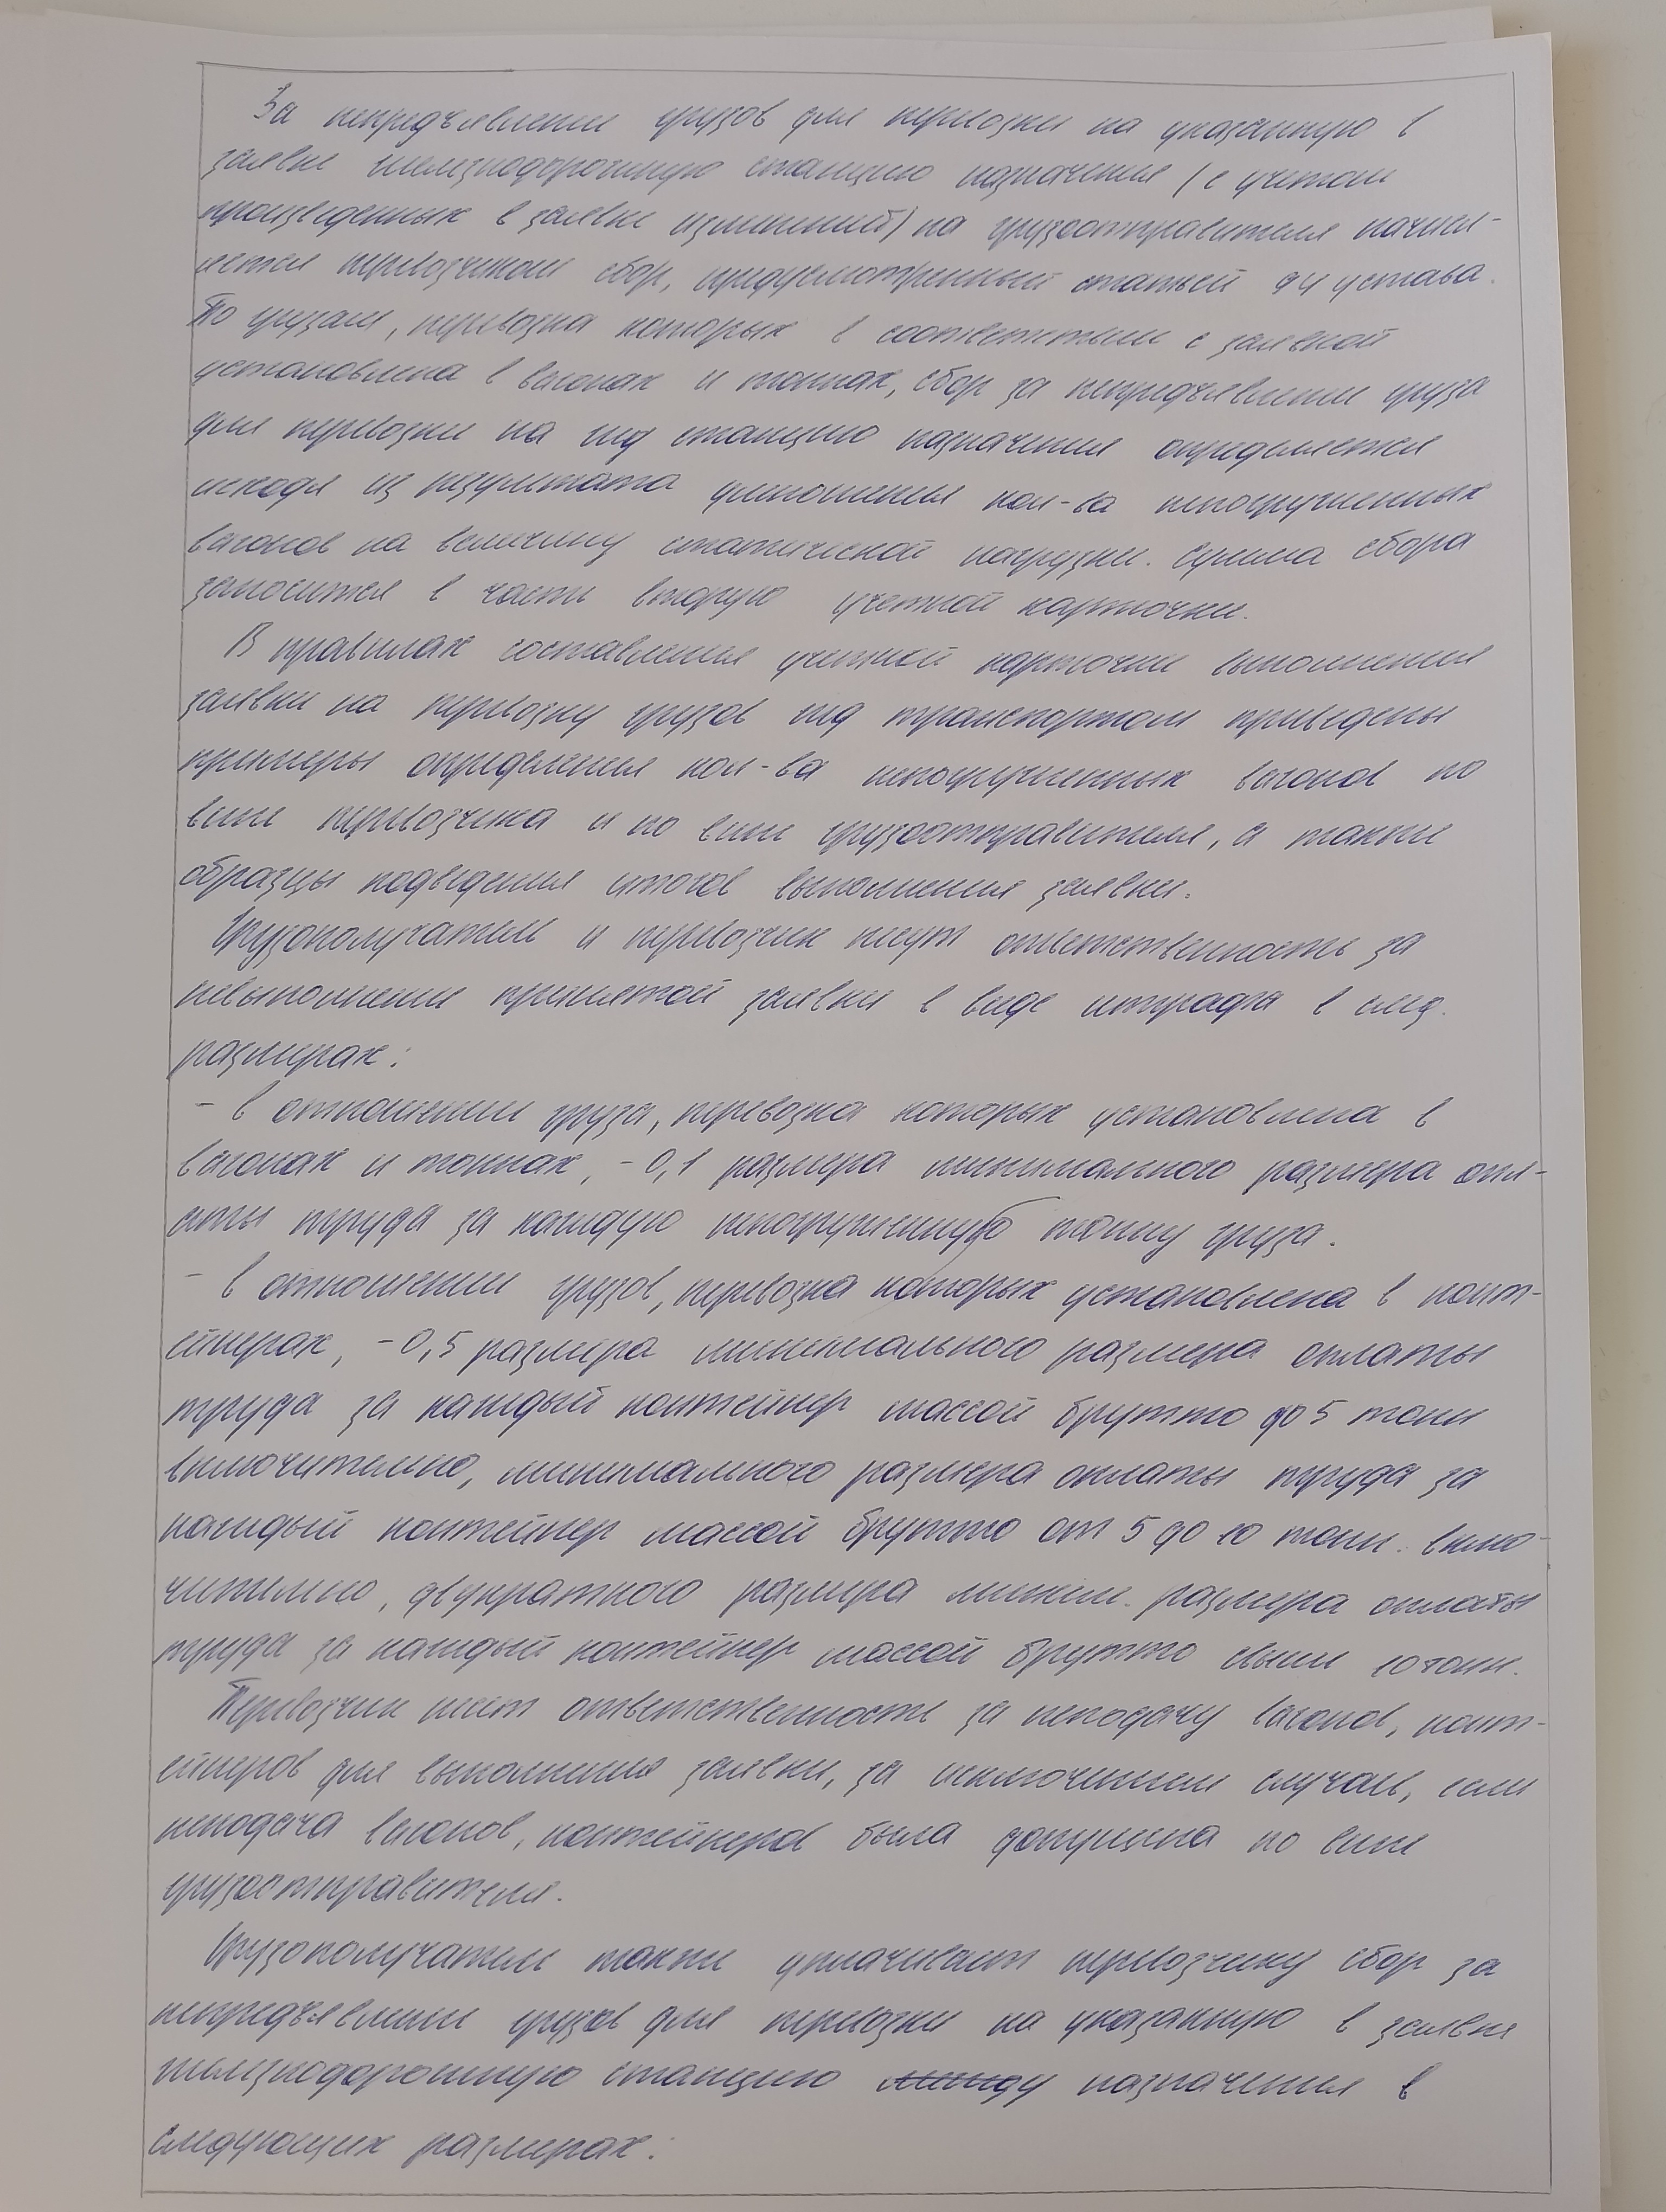 За непредъявление грузов для перевозки на указанную в
заявке железнодорожную станцию назначения (с учетом
произведенных в заявке изменений) на грузоотправителя начисл-
яется перевозчиком сбор, предусмотренный статьей 94 устава.
По грузам, перевозка которых в соответствии с заявкой
установлена в вагонах и тоннах, сбор за непредъявление груза
для перевозки на жд станцию назначения определяется
исходя из результата умножения кол-ва непогруженных
вагонов на величину статической нагрузки. Сумма сбора
заносится в часть вторую учетной карточки.
В правилах составления учетной карточки выполнения
заявки на перевозку грузов жд транспортом приведены
примеры определения кол-ва непогруженных вагонов по
вине перевозчика и по вине грузоотправителя, а также
образцы подведения итогов выполнения заявки.
Грузополучатель и перевозчик несут ответственность за
невыполнение принятой заявки в виде штрафа в след.
размерах:
- в отношении груза, перевозка которых установлена в
вагонах и тоннах, - 0,1 размера минимального размера опл-
аты труда за каждую непогруженную тонну груза.
- в отношении грузов, перевозка которых установлена в конт-
ейнерах, - 0,5 размера минимального размера оплаты
труда за каждый контейнер массой брутто до 5 тонн
включительно, минимального размера оплаты труда за
каждый контейнер массой брутто от 5 до 10 тонн. вклю-
чительно, двукратного размера миним. размера оплаты
труда за каждый контейнер массой брутто свыше 10 тонн.
Перевозчик несет ответственность за неподачу вагонов, конт-
ейнеров для выполнения заявки, за исключением случаев, если
неподача вагонов, контейнеров была допущена по вине
грузоотправителя.
Грузополучатель также уплачивает перевозчику сбор за
непредъявление грузов для перевозки на указанную в заявке
железнодорожную станцию назначения в
следующих размерах: